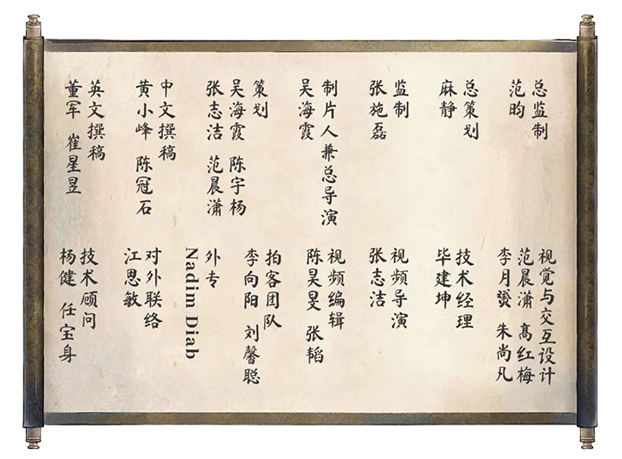 总监制
范昀
总策划
麻静
监制
张施磊
制片人兼总导演
吴海霞
策划
吴海霞 陈宇杨
张志洁 范晨潇
中文撰稿
黄小峰 陈冠石
英文撰稿
董军 崔星昱
视觉与交互设计
范晨潇 高红梅
朱尚凡
技术经理
毕建坤
视频导演
张志洁
视频编辑
陈昊旻 张韬
拍客团队
李向阳 刘馨聪
外专
Nadim Diab
对外联络
江思敏
技术顾问
杨健 任宝身